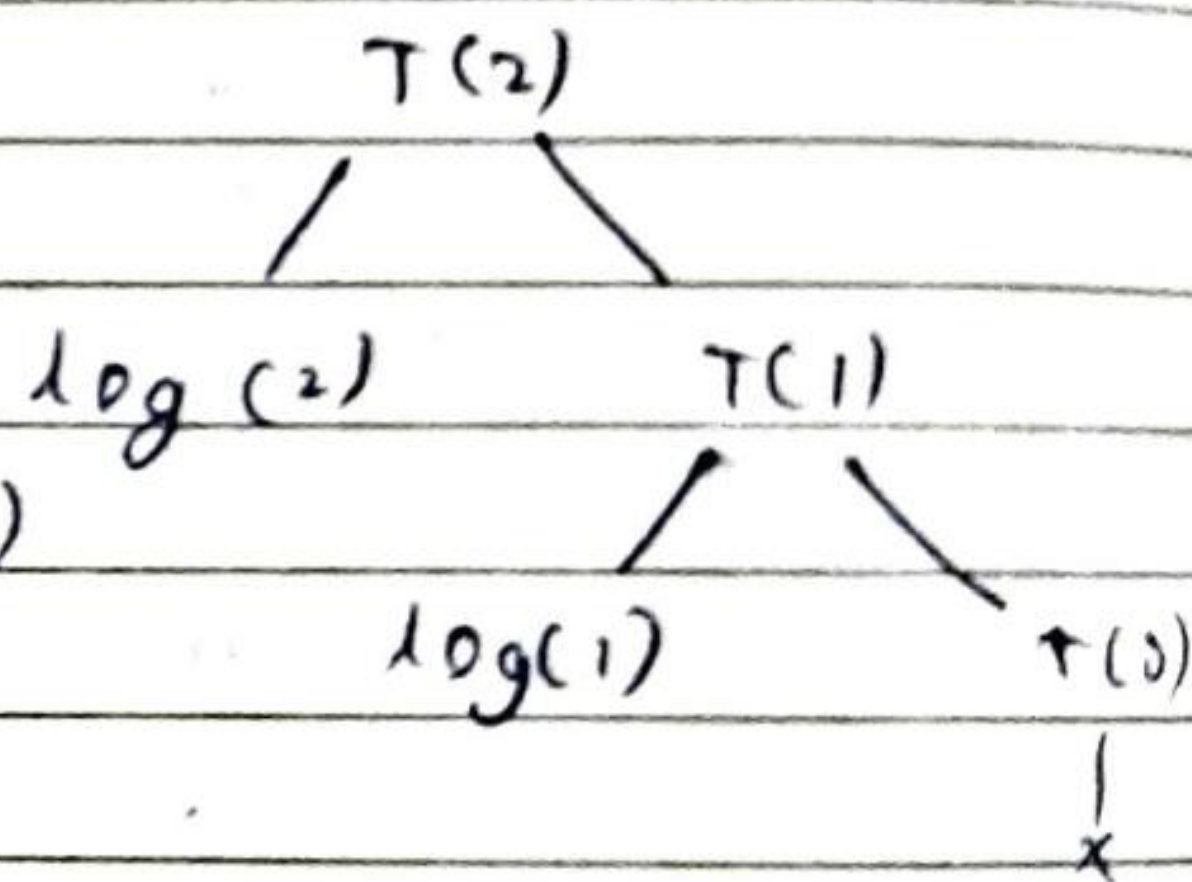 T(2)
log (2) T(1)
)
log(1) T(0)
x